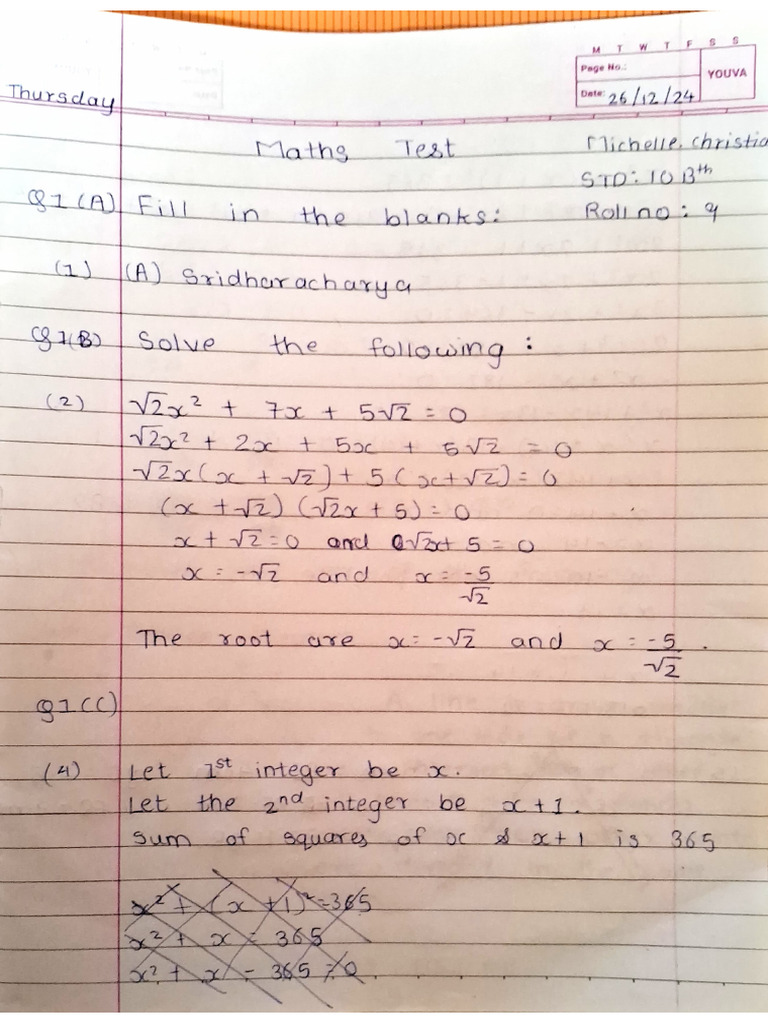 M T W T F S S
Page No.:
YOUVA
Date: 26/12/24
Thursday
Maths Test
Michelle. christia
STD: 10 Bth
Roll no: 9
Q1(A) Fill in the blanks:
(1) (A) Sridharacharya
Q1(B) Solve the following:
(2) √2x² + 7x + 5√2 = 0
√2x² + 2x + 5x + 5√2 = 0
√2x(x + √2) + 5(x+√2) = 0
(x + √2) (√2x + 5) = 0
x + √2 = 0 and √2x + 5 = 0
x = -√2 and x = -5/√2
The root are x = -√2 and x = -5/√2.
Q1(C)
(4) Let 1st integer be x.
Let the 2nd integer be x+1.
Sum of squares of x & x+1 is 365
x² + (x + 1)² = 365
x² + x = 365
x² + x - 365 = 0